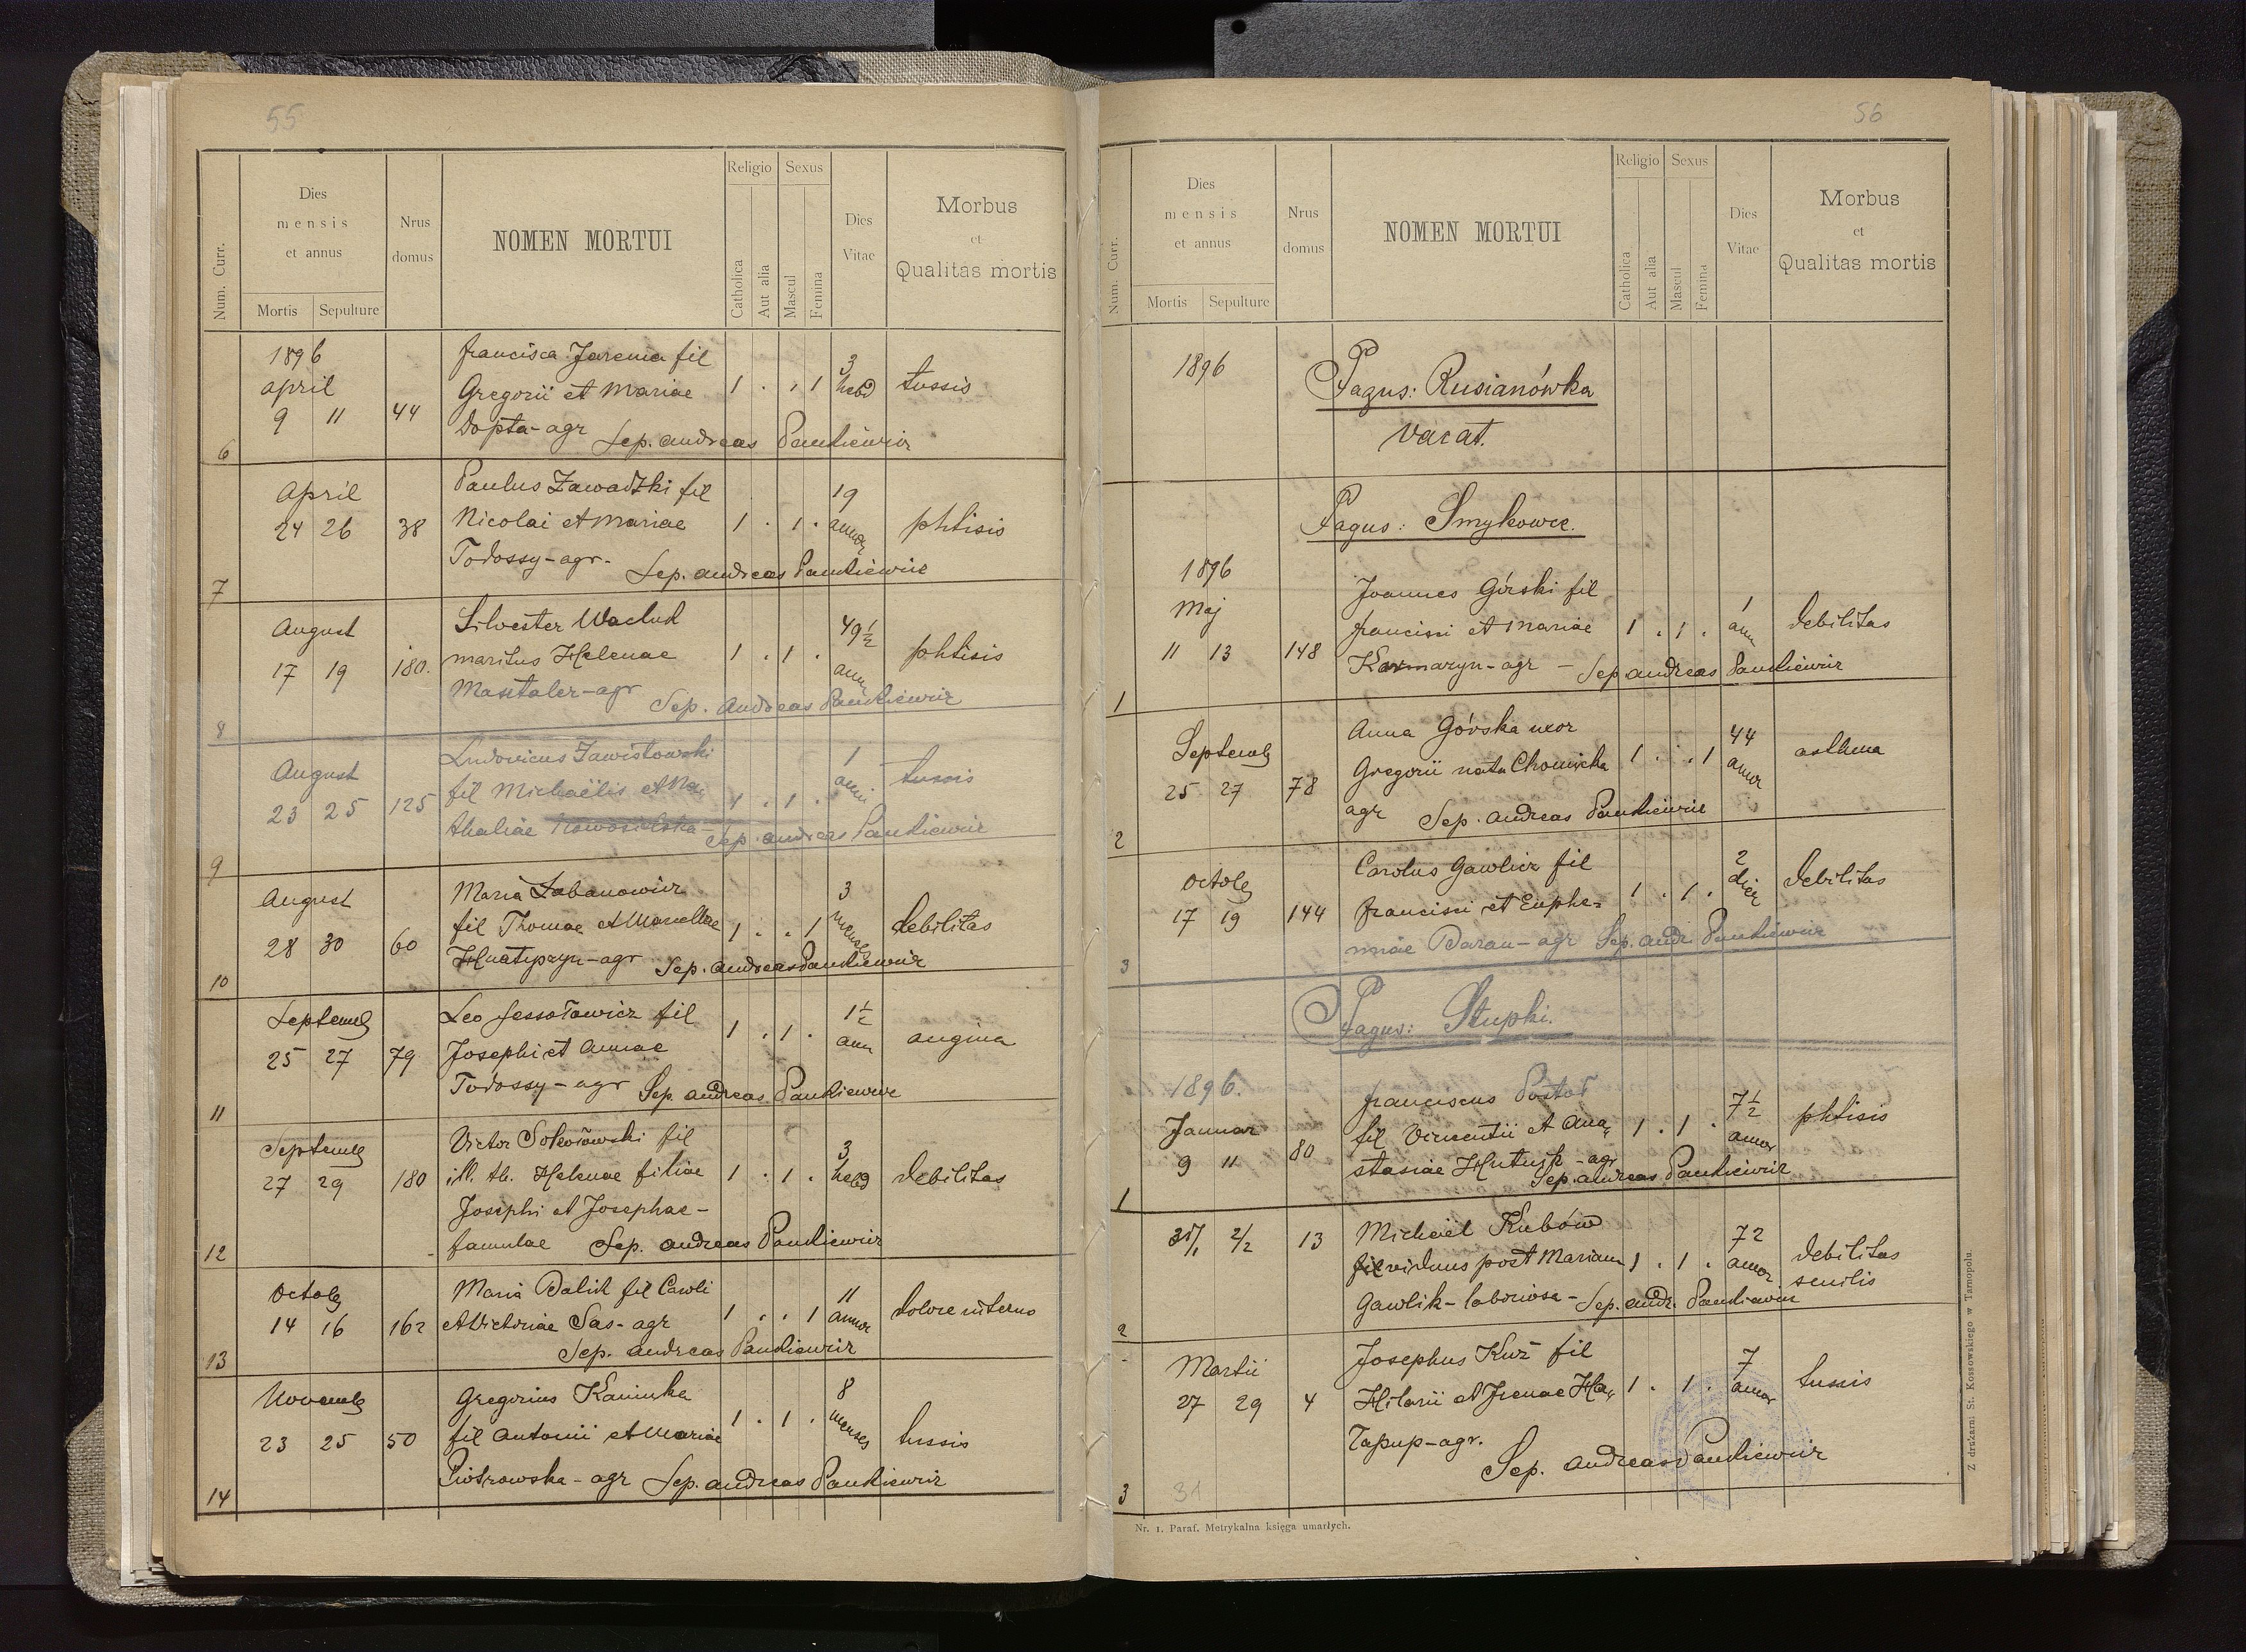 55
Num. Curr.
Dies
mensis
et annus
Mortis Sepulture
Nrus
domus
NOMEN MORTUI
Religio
Catholica
Aut alia
Sexus
Mascul
Femina
Dies
Vitae
Morbus
et
Qualitas mortis
1896
april
9 11 44
Francisca Jarema fil
Gregorii et Mariae
Dopta-agr Sep. Andreas Pankiewicz
1 . . 1
3
hebd
tussis
6
April
24 26 38
Paulus Zawadzki fil
Nicolai et Mariae
Todossy-agr. Sep. Andreas Pankiewicz
1 . 1 .
19
annor
phtisis
7
August
17 19 180.
Silvester Wacluk
maritus Helenae
Masztaler-agr Sep. Andreas Pankiewicz
1 . 1 .
49 1/2
ann
phtisis
8
August
23 25 125
Ludovicus Zawistowski
fil Michaëlis et Na-
thaliae Nowosielska- Sep. Andreas Pankiewicz
1 . 1 .
1
anni
tussis
9
August
28 30 60
Maria Łabanowicz
fil Thomae et Marcellae
Sep. Andreas Pankiewicz
1 . . 1
3
mens
debilitas
10
Septemb
25 27 79
Leo Jessołowicz fil
Josephi et Annae
Todossy-agr Sep. Andreas Pankiewicz
1 . 1 .
1 1/2
ann
angina
11
Septemb
27 29 180
Victor Sokołowski fil
ill. th. Helenae filiae
Josephi et Josephae-
famulae Sep. Andreas Pankiewicz
1 . 1 .
3
hebd
debilitas
12
Octob
14 16 162
Maria Balik fil Caroli
et Victoriae Sas-agr
Sep. Andreas Pankiewicz
1 . . 1
11
annor
dolore interno
13
Novemb
23 25 50
Gregorius Kaminka
fil Antonii et Mariae
Piotrowska-agr Sep. Andreas Pankiewicz
1 . 1 .
8
menses
tussis
14
56
Num. Curr.
Dies
mensis
et annus
Mortis Sepulture
Nrus
domus
NOMEN MORTUI
Religio
Catholica
Aut alia
Sexus
Mascul
Femina
Dies
Vitae
Morbus
et
Qualitas mortis
1896
Pagus: Rusianówka
vacat.
Pagus: Smykowce.
1896
Maj
11 13 148
Joannes Górski fil
Francisci et Mariae
Karmaryn-agr - Sep Andreas Pankiewicz
1 . 1 .
1
ann
debilitas
1
Septemb
25 27 78
Anna Górska uxor
Gregorii nata Chomicka
agr Sep. Andreas Pankiewicz
1 . . 1
44
annor
asthma
2
Octob
17 19 144
Carolus Gawlicz fil
Francisci et Euphe-
miae Baran-agr Sep. Andr. Pankiewicz
1 . 1 .
2
dier
debilitas
3
Pagus: Stupki.
1896.
Januar
9 11 80
Franciscus Postoł
fil Vincentii et Ana-
stasiae -agr
Sep. Andreas Pankiewicz
1 . 1 .
7 1/2
annor
phtisis
1
31/1 2/2 13
Michaël Kubów
fil viduus post Mariam
Gawlik-laboriosa- Sep. Andr. Pankiewicz
1 . 1 .
72
annor
debilitas
senilis
2
Martii
27 29 4
Josephus Kuź fil
Hilarii et Irenae Ha-
łapup-agr.
Sep. Andreas Pankiewicz
1 . 1 .
7
annor
tussis
3 31
Nr. 1. Paraf. Metrykalna księga umarłych.
Z drukarni St. Kossowskiego w Tarnopolu.